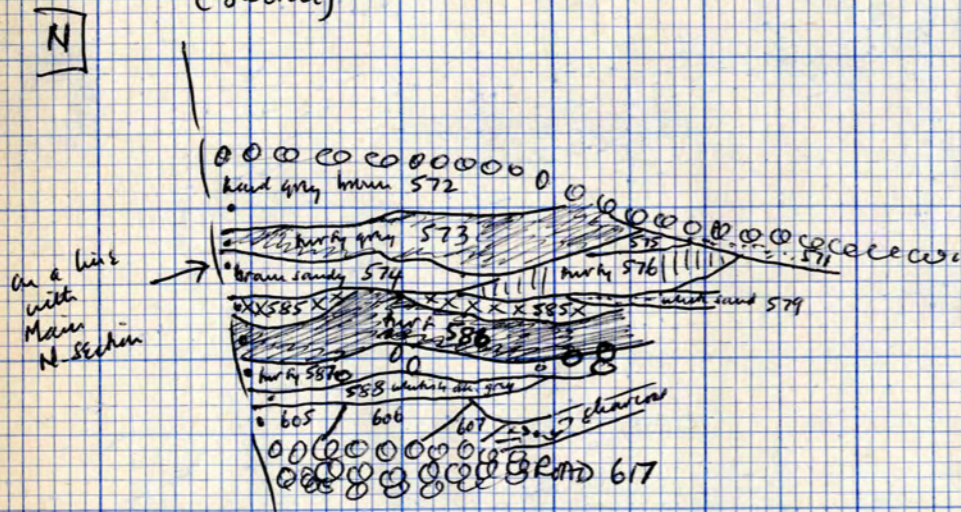 N
hard grey brown 572
turfy grey 573
575
571
turfy 576
brown sandy 574
on a line
with
Main
N-Section
XX585XX
XXXX585X
white sand 579
turf
586
turfy 587
588 whitish grey
605 606 607
charcoal
ROAD 617